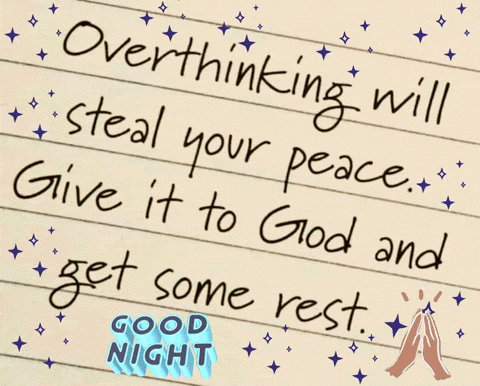 Overthinking will
steal your peace.
Give it to God and
get some rest.
GOOD
NIGHT